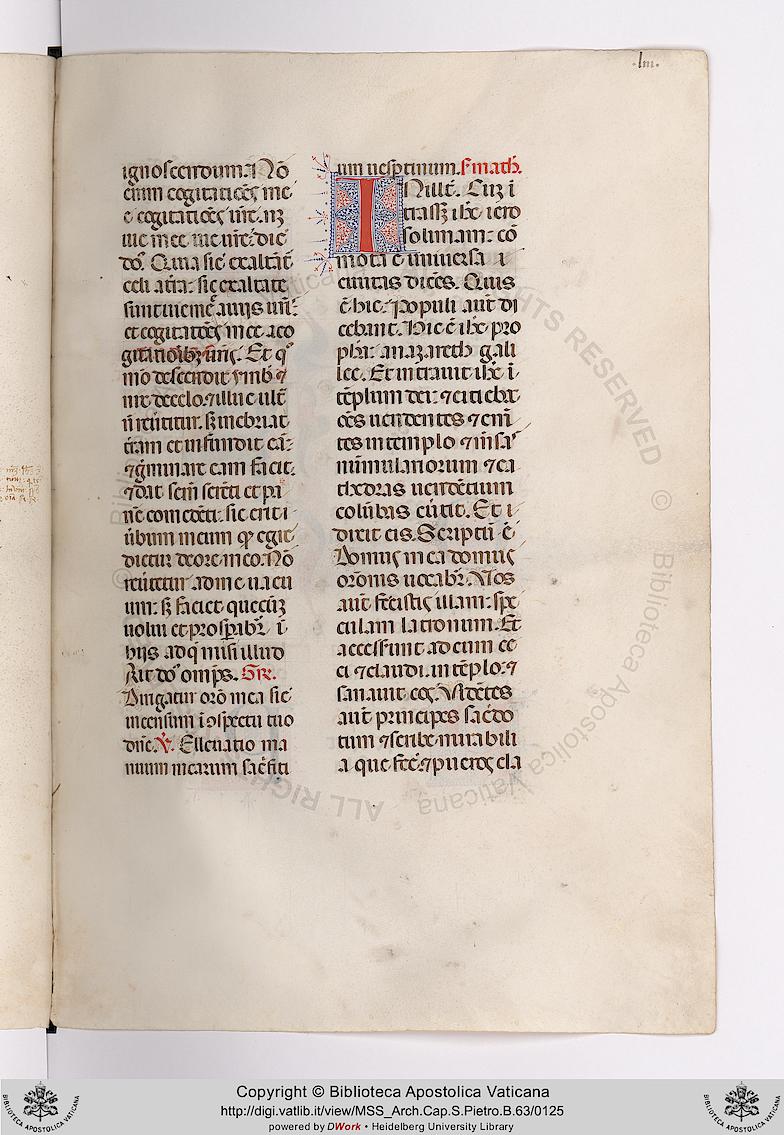 .lııı.
ignoscendum. Nō
enim cogitatiōes me
e cogitatiōes vr̄e. nꝫ
uie mee uie ur̄e: dic̄
dōs. Quia sic̄ exaltāt̄
celi a t̄ra: sic̄ exaltate
sunt uie meē a uiis ur̄is:
et cogitatiōes mee a co
gitatiōibꝫ ur̄is. Et qͦ
mō descendit ymbͬ ⁊
nix de celo. ⁊ illuc ult̄
n̄ reu̾titur. sꝫ inebriat
t̄ram et infundit eā:
⁊ g̾minare eam facit.
⁊ dat sem̄ serēti et pa
nē comedēti: sic̄ erit i
u̾bum meum qd̾ egre
dietur de ore meo. Nō
reu̾tetur ad me uacu
um: sꝫ faciet quecūqꝫ
uolui et prosꝑabit̾ i
hiis ad q̄ misi illud
Ait dōs om̄ps. Gͬ.
Dirigatur orō mea sic̄
incensum i ꝯspectu tuo
dn̄e. V̾. Elleuatio ma
nuum mearum sac̾fiti
um uesptinum. s̄ math̄.
IN ill̄ t̄. Cuꝫ ī
trassꝫ ih̄c iero
solimam: cō
mota ē universa i
ciuitas dicēs. Quis
ē hic. Populi aut̄ di
cebant. Hic ē ih̄c pro
ph̄a: a nazareth gali
lee. Et intrauit ih̄c ī
tēplum dei: ⁊ eiciebat
oēs uendentes ⁊ emē
tes in templo ⁊ mēsas
nūmulariorum ⁊ ca
thedras uendētium
colūbas eu̾tit. Et i
dixit eis. Scriptū ē
Domus mea domus
orōnis uocabit̾. Uos
aut̄ fecistis illam: spe
culam latronum. Et
accesserunt ad eum ce
ci ⁊ claudi. in tēplo: ⁊
sanauit eos. Uidētes
aut̄ principes sac̾do
tum ⁊ scribe mirabili
a que fecit ⁊ pueros cla
Copyright © Biblioteca Apostolica Vaticana
http://digi.vatlib.it/view/MSS_Arch.Cap.S.Pietro.B.63/0125
powered by DWork • Heidelberg University Library